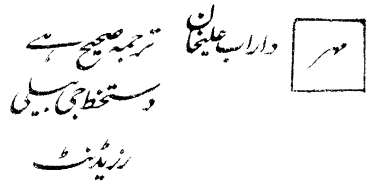 مہر داراب علیخان ترجمہ صحیح ہے
دستخط جی بیلی
رزیڈنٹ